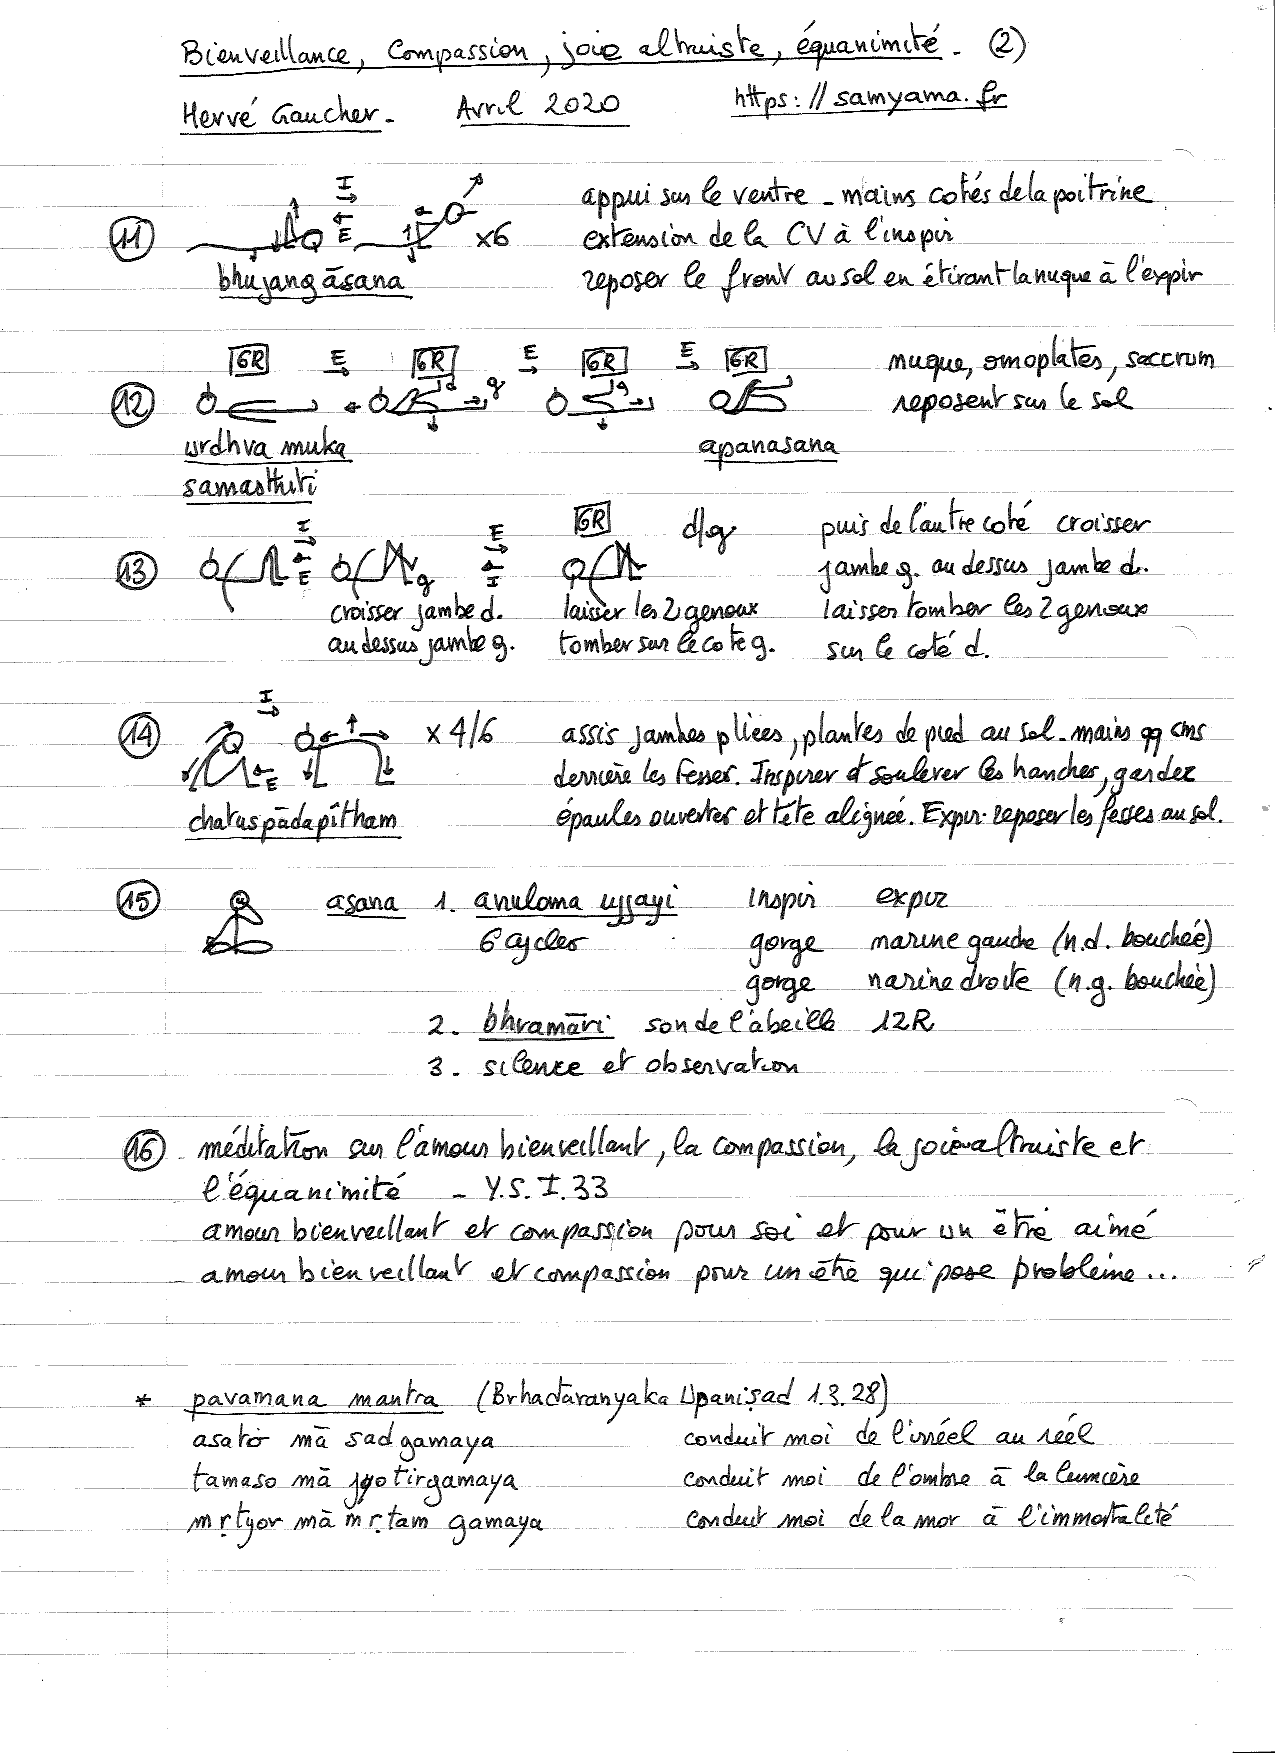 Bienveillance, Compassion, joie altruiste, équanimité. (2)
Hervé Gaucher. Avril 2020 https://samyama.fr
11 I E x6 appui sur le ventre - mains cotés de la poitrine
extension de la CV à l'inspir
bhujangāsana reposer le front au sol en étirant la nuque à l'expir
12 6R E 6R E 6R E 6R nuque, omoplates, saccrum
d g g reposent sur le sol
urdhva muka apanasana
samasthiti
13 I E E I 6R d/g puis de l'autre coté croisser
g jambe g. au dessus jambe d.
croisser jambe d. laisser les 2 genoux laisser tomber les 2 genoux
au dessus jambe g. tomber sur le cote g. sur le coté d.
14 I E x 4/6 assis jambes pliées, plantes de pied au sol - mains qq cms
derrière les fesses. Inspirer et soulever les hanches, gardez
chatuspādapîtham épaules ouvertes et tête alignée. Expir. reposer les fesses au sol.
15 asana 1. anuloma ujjayi inspir expir
6 cycles gorge narine gauche (n.d. bouchée)
gorge narine droite (n.g. bouchée)
2. bhramāri son de l'abeille 12R
3. silence et observation
16 méditation sur l'amour bienveillant, la compassion, la joie altruiste et
l'équanimité - Y.S. I.33
amour bienveillant et compassion pour soi et pour un être aimé
amour bienveillant et compassion pour un être qui pose problème...
* pavamana mantra (Brhadāranyaka Upaniṣad 1.3.28)
asato mā sadgamaya conduit moi de l'irréel au réel
tamaso mā jyotirgamaya conduit moi de l'ombre à la lumière
mṛtyor mā mṛtam gamaya conduit moi de la mor à l'immortalité